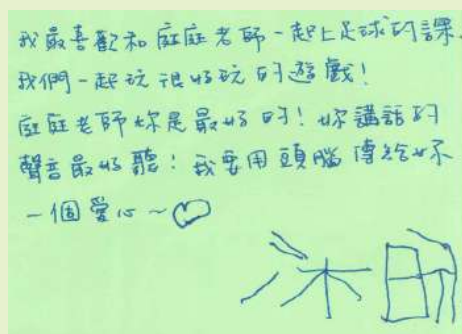 我最喜歡和庭庭老師一起上足球的課。
我們一起玩很好玩的遊戲！
庭庭老師妳是最好的！妳講話的
聲音最好聽！我要用頭腦傳給妳
一個愛心～
沐明